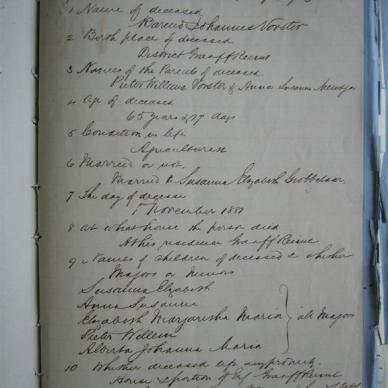 1 Name of deceased
Barend Johannes Vorster
2 Birth place of deceased
District Graaff Reinet
3 Names of the Parents of deceased
Pieter Willem Vorster & Anna Susanna
4 Age of deceased
65 years & 17 days
5 Condition in life
Agriculturest
6 Married or not
Married to Susanna Elizabeth Grobbelaar
7 The day of decease
1 November 1881
8 At what house the person died
At his residence Graaff Reinet
9 Names of Children of deceased & whether
Majors or Minors
Susanna Elizabeth
Anna Susanna
Elizabeth Margaretha Maria
all Majors
Pieter Willem
Alberta Johanna Maria
10 Whether deceased left any property.
House & portion of Graaff Reinet